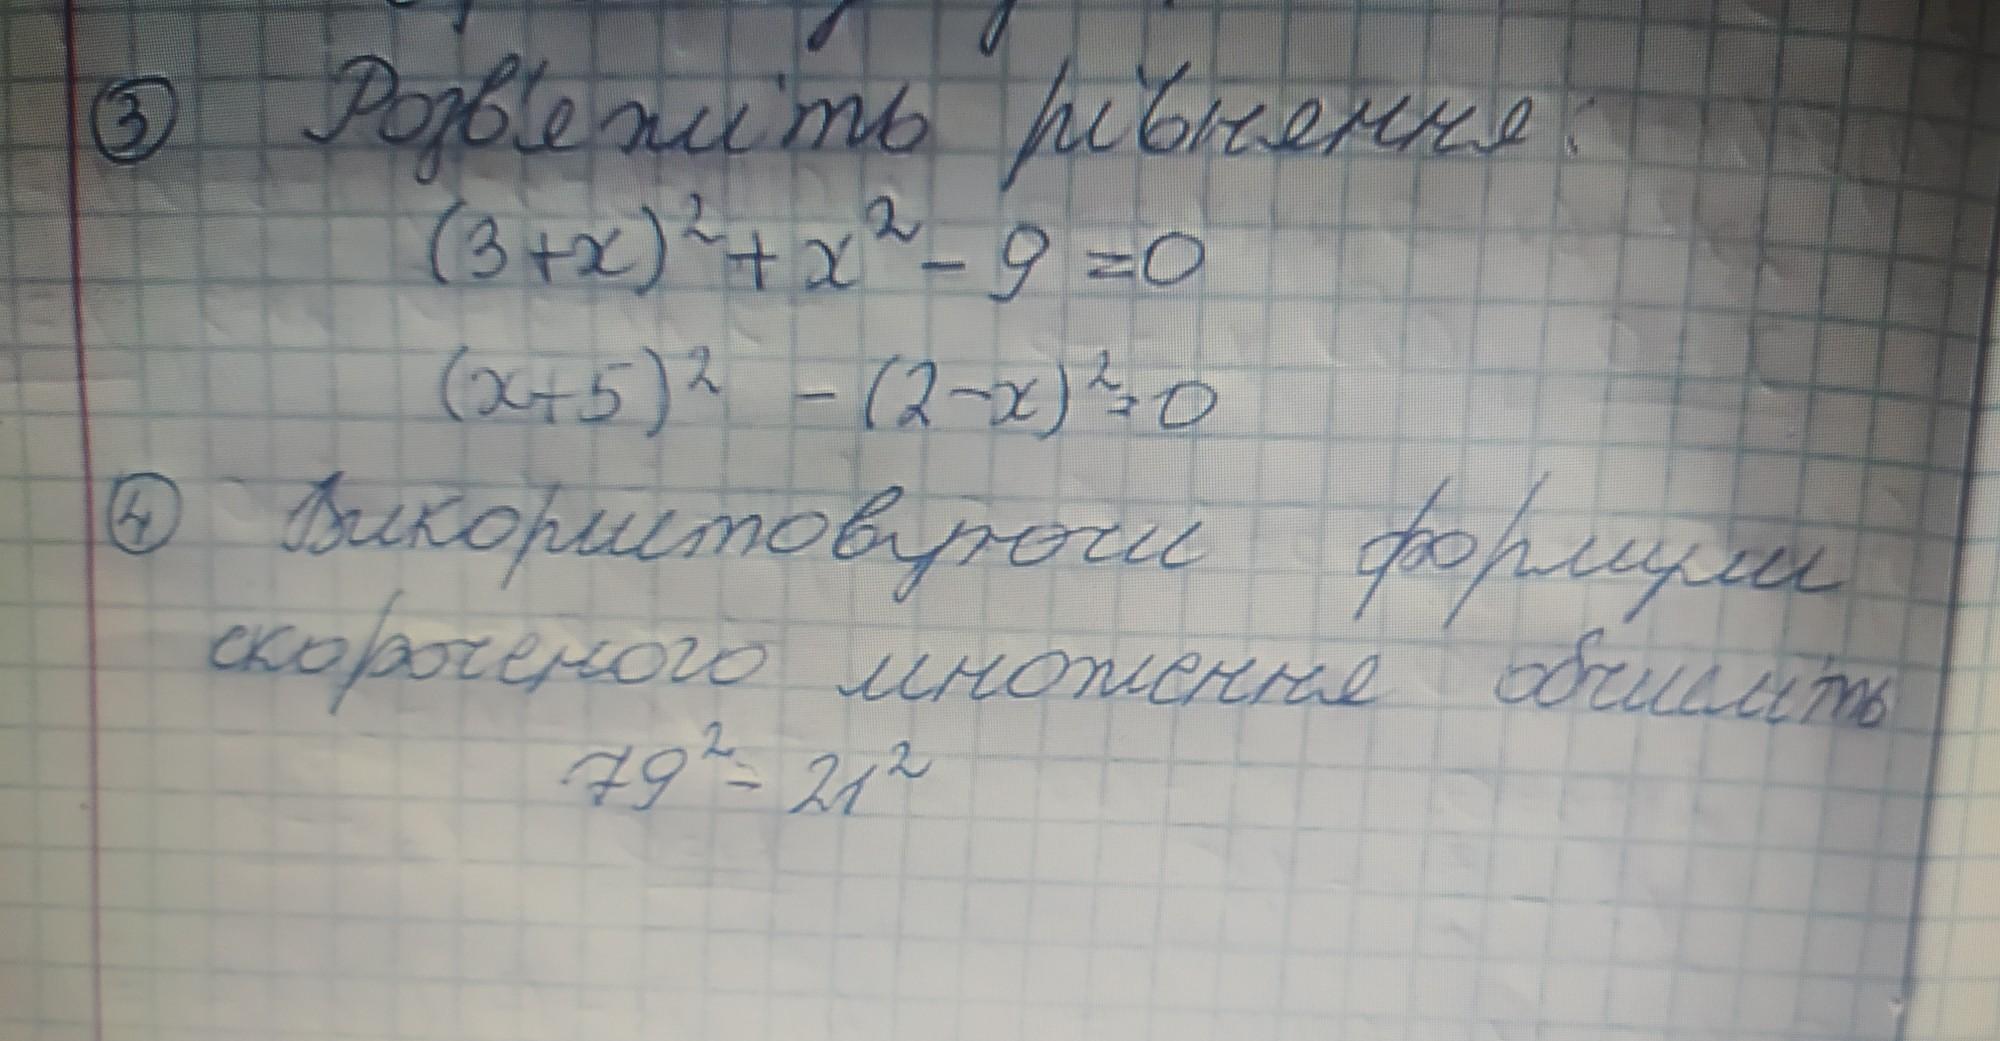 ③ Розв'яжить рівняння:
(3+x)² + x² - 9 = 0
(x+5)² - (2-x)² = 0
④ Використовуючи формули
скороченого множення обчислить
79² - 21²